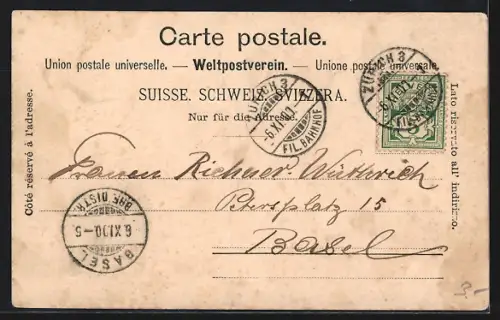 Carte postale.
Union postale universelle. — Weltpostverein. — Unione postale universale.
SUISSE. SCHWEIZ. SVIZZERA.
Nur für die Adresse.
Côté réservé à l'adresse.
Lato riservato all' indirizzo.
ZÜRICH 3
-6.XI.01
FIL. BAHNHOF
ZÜRICH 3
-6.XI.01
FIL. BAHNHOF
5
Frauen Wüthrich
Petersplatz 15
Basel
BASEL
6.XI.00-5
BRF. DISTR.
3.-